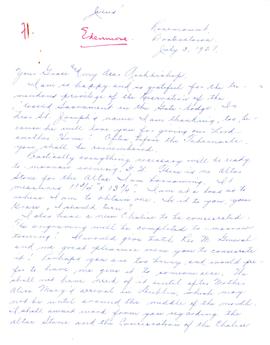 Edenmore
Rosemount
July 2, 1921.
Your Grace & my dear Archbishop,
I am so happy and so grateful for the tre-
mendous privilege of the Reservation of the
Blessed Sacrament in the Gate Lodge. In
dear St. Joseph's name I am thanking, too, be-
cause he will love you for giving our Lord
another "Home". From the Tabernacle
you shall be remembered.
Practically everything necessary will be ready
to-morrow evening, but there is no Altar
Stone for the Altar I am borrowing. It
measures
I am at a loss as to
where I am to obtain one. So it is to you, your
Grace, I should turn.
I also have a new Chalice to be consecrated.
The engraving will be completed to-morrow
evening. I would give
and me great pleasure were you to consecrate
it! Perhaps you are too busy and would pre-
fer to have me give it to someone else. We
shall not have need of it until after Mother
Mary's arrival in Dublin, which may
not be until around the middle of the month.
I shall await word from you regarding the
Altar Stone and the Consecration of the Chalice